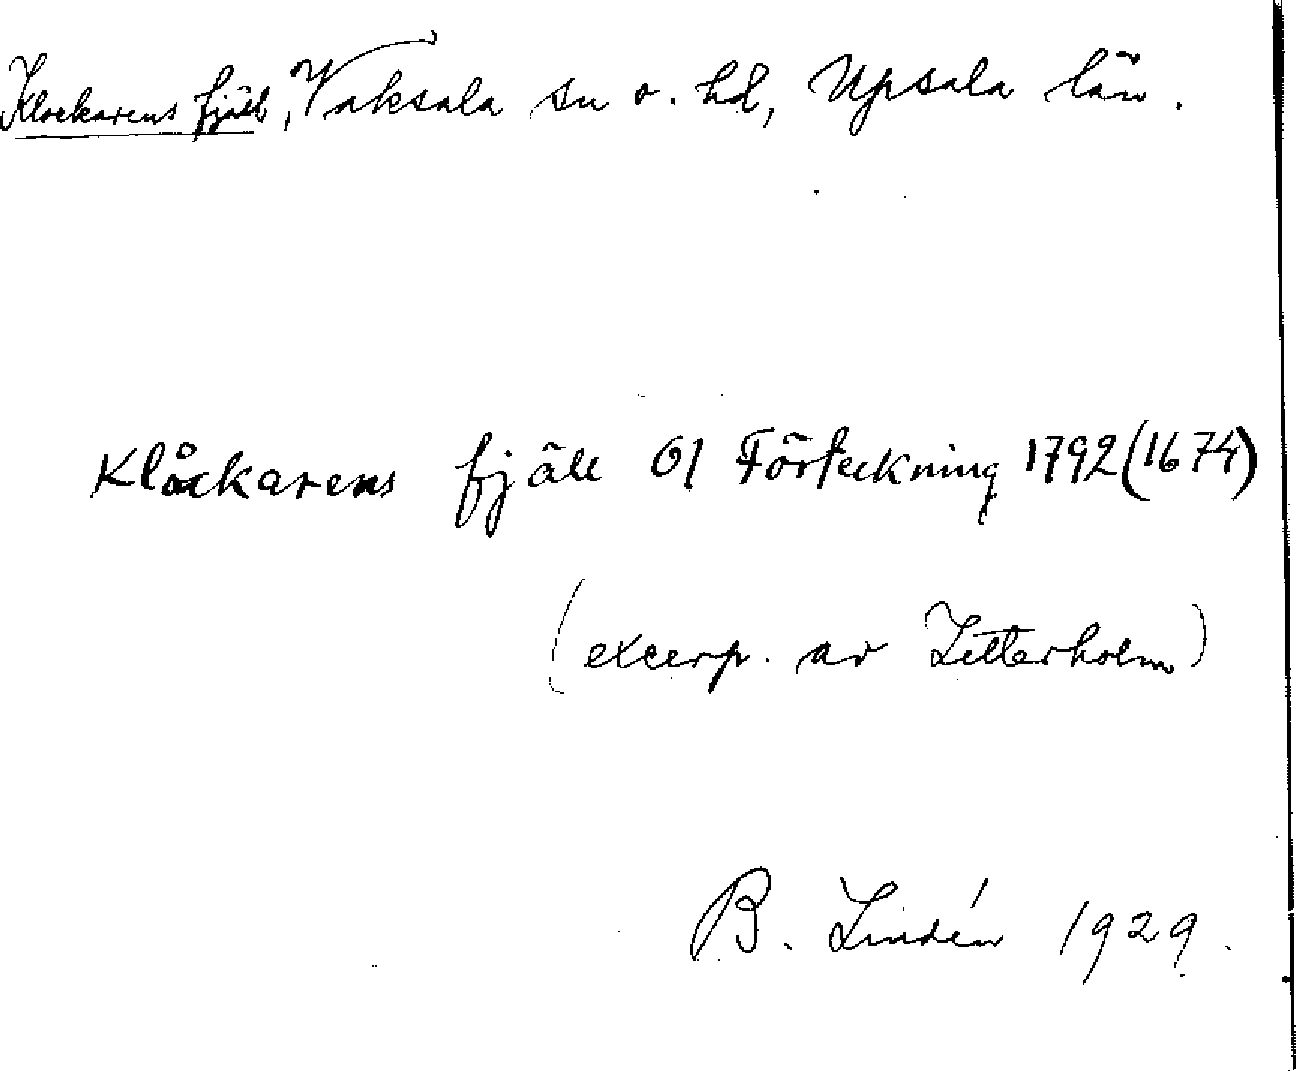 Klockarens fjäll, Vaksala sn o. hd, Upsala län.
Klåckarens fjäll Förteckning 1792 (1674)
(excerp. av Zetterholm)
B. Lindén 1929.